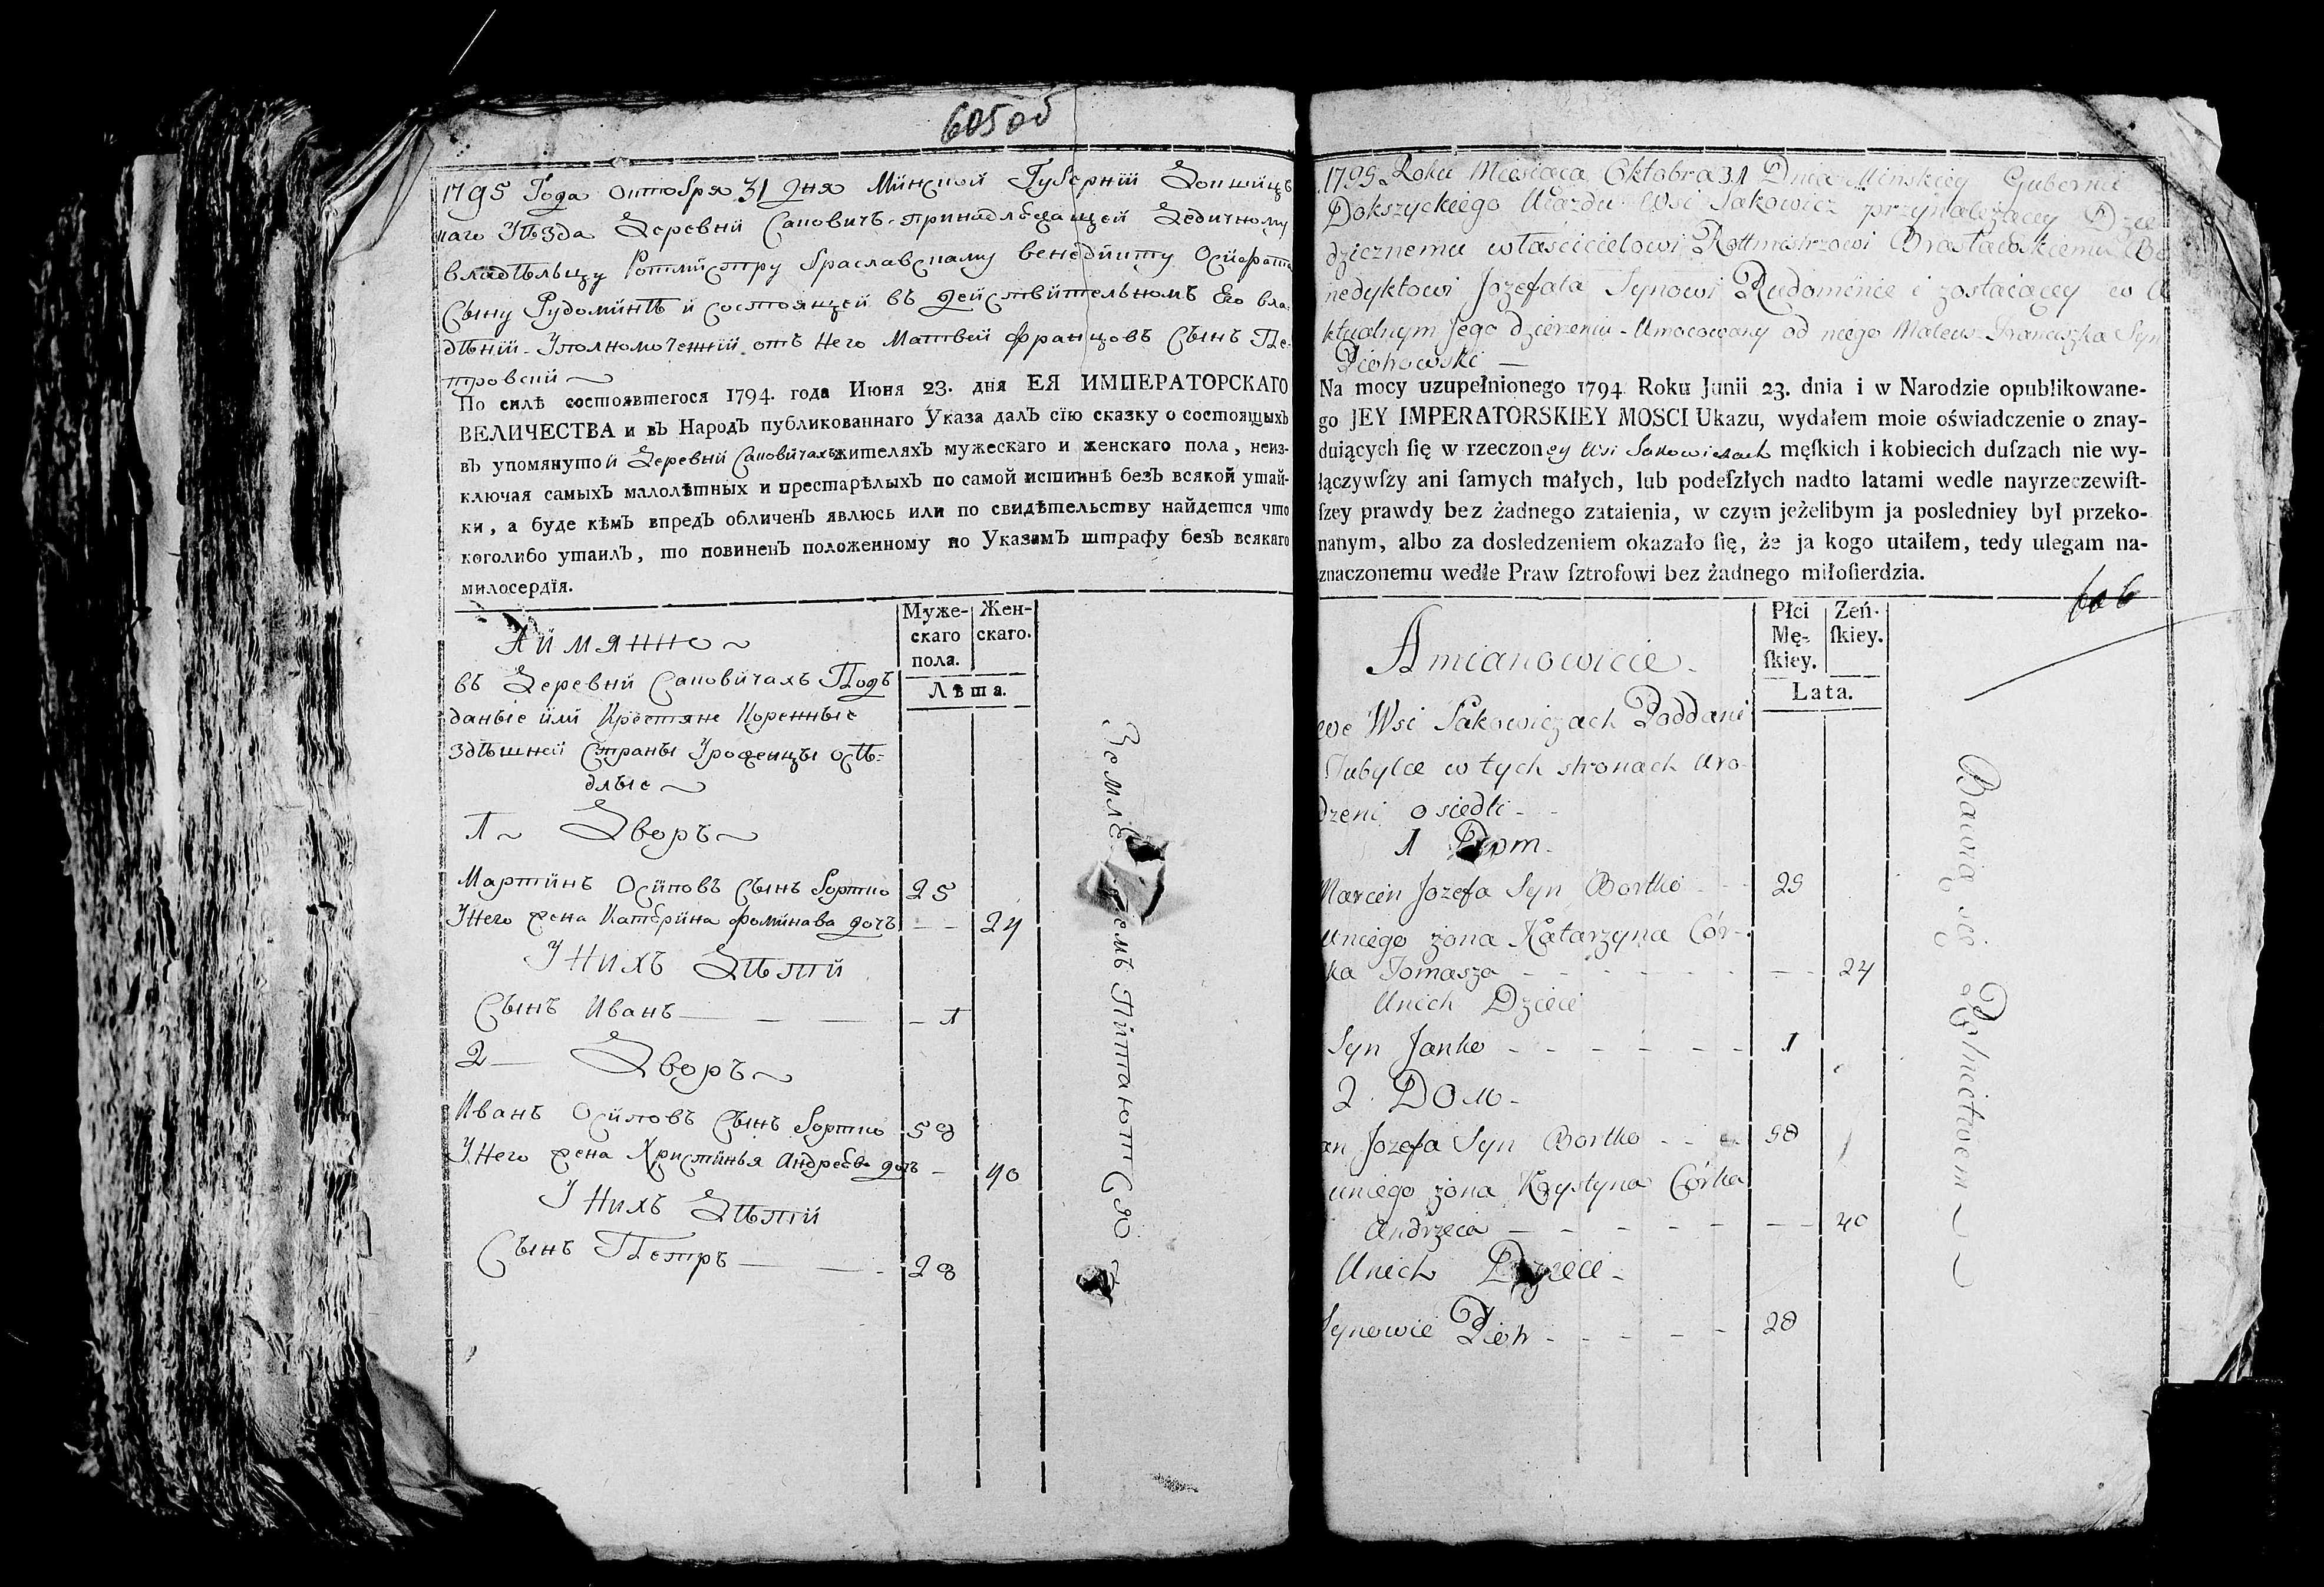 605 об
1795 Года Октобря 31 Дня Минской Губернїи Докшицъ
каго Уѣзда Деревни Саковичъ принадлежащей Дедичному
владѣльцу Ротмистру Браславскому Бенедикту Осифата
Сыну Рудоминѣ и состоящей въ Действительномъ Его вла-
дѣнїи Уполномоченнїй отъ Него Матвей Францовъ Сынъ Пе-
тровскїй
По силѣ состоявшегося 1794. года Июня 23. дня ЕЯ ИМПЕРАТОРСКАГО
ВЕЛИЧЕСТВА и вЪ НародЪ публикованнаго Указа далЪ сїю сказку о состоящыхЪ
вЪ упомянутой Деревни Саковичахъ жителяхЪ мужескаго и женскаго пола, неиз-
ключая самыхЪ малолѣтныхъ и престарѣлыхЪ по самой истиннѣ безЪ всякой утай-
ки, а буде кѣмЪ впредЪ обличенЪ явлюсь или по свидѣтельству найдется что
коголибо утаилЪ, то повиненЪ положенному по УказамЪ штрафу безЪ всякаго
милосердїя.
Муже-
скаго
пола.
Жен-
скаго.
Лѣта.
Аимянно
въ Деревни Саковичахъ Под
даные или Крестяне Коренные
здѣшней Страны Уроженцы осѣ-
длые
1 Дворъ
Мартинъ Осиповъ Сынъ Бортко 25
У Него жена Катерина Фоминава дочъ — — 24
У Нихъ Дѣти
Сынъ Иванъ — — — — 1
2 — Дворъ
Иванъ Осиповъ Сынъ Бортко 58
У Него жена Христинья Андреева дочъ — 40
У Нихъ Дѣти
Сынъ Петръ — — - 28
Питаются
1795 Roku Miesiąca Oktobra 31 Dnia Minskiey Gubernii
Dokszyckiego Ujazdu Wsi Sakowicz przynależącey Dzie
dzicznemu właścicielowi Rottmistrzowi Brasławskiemu Be
nedyktowi Jozefata Synowi Rudominie i zostaiącey w A
ktualnym Jego dzierzeniu - Umocowany od niego Mateus Franciszka Syn
Piotrowski —
Na mocy uzupełnionego 1794 Roku Junii 23. dnia i w Narodzie opublikowane-
go JEY IMPERATORSKIEY MOSCI Ukazu, wydałem moie oświadczenie o znay-
duiących ſię w rzeczoney Wsi Sakowiczach męſkich i kobiecich duſzach nie wy-
łączywſzy ani ſamych małych, lub podeſzłych nadto latami wedle nayrzeczewiſt-
ſzey prawdy bez żadnego zataienia, w czym jeżelibym ja posledniey był przeko-
nanym, albo za dosledzeniem okazało ſię, że ja kogo utaiłem, tedy ulegam na-
znaczonemu wedle Praw ſztrofowi bez żadnego miłoſierdzia.
606
Płci
Mę-
ſkiey.
Zeń-
ſkiey.
Lata.
Amianowicie -
we Wsi Sakowiczach Poddani
Tubylce w tych stronach uro-
dzeni osiedli - -
1 Dom -
Marcin Jozefa Syn Bortko - - 25
uniego żona Katarzyna Cór-
ka Tomasza - - - - - - - 24
Unich Dzieci
Syn Janko - - - - - - 1
2 . Dom -
Jozefa Syn Bortko - - - 58
uniego żona Krystyna Córka
Andrzeia — - - - - - - - 40
Unich Dzieci -
Synowie Piotr - - - - - 28
Bawią się Rolnictwem